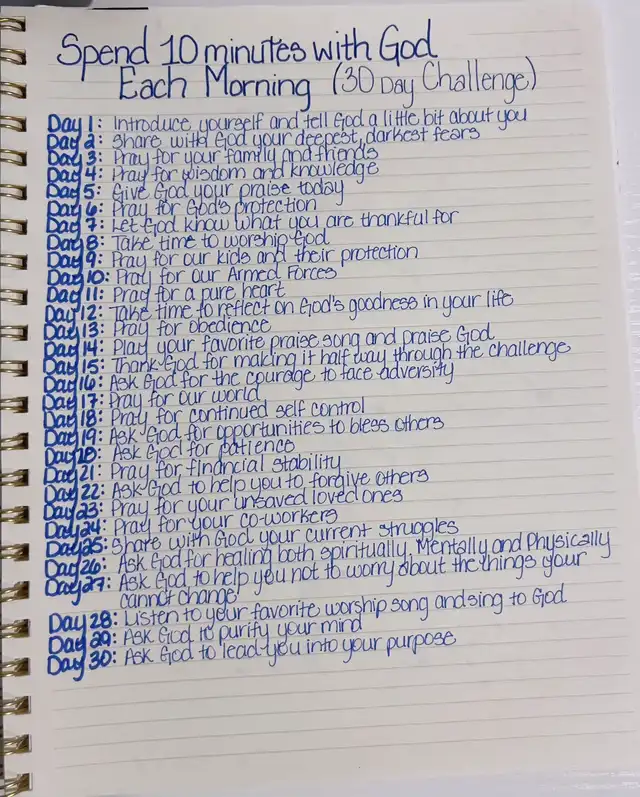 Spend 10 minutes with God
Each Morning (30 Day Challenge)
Day 1: Introduce yourself and tell God a little bit about you
Day 2: Share with God your deepest, darkest fears
Day 3: Pray for your family and friends
Day 4: Pray for wisdom and knowledge
Day 5: Give God your praise today
Day 6: Pray for God's protection
Day 7: Let God know what you are thankful for
Day 8: Take time to worship God
Day 9: Pray for our kids and their protection
Day 10: Pray for our Armed Forces
Day 11: Pray for a pure heart
Day 12: Take time to reflect on God's goodness in your life
Day 13: Pray for obedience
Day 14: Play your favorite praise song and praise God
Day 15: Thank God for making it half way through the challenge
Day 16: Ask God for the courage to face adversity
Day 17: Pray for our world
Day 18: Pray for continued self control
Day 19: Ask God for opportunities to bless others
Day 20: Ask God for patience
Day 21: Pray for financial stability
Day 22: Ask God to help you to forgive others
Day 23: Pray for your unsaved loved ones
Day 24: Pray for your co-workers
Day 25: Share with God your current struggles
Day 26: Ask God for healing both spiritually, Mentally and Physically
Day 27: Ask God to help you not to worry about the things your
cannot change!
Day 28: Listen to your favorite worship song and sing to God
Day 29: Ask God to purify your mind
Day 30: Ask God to lead you into your purpose